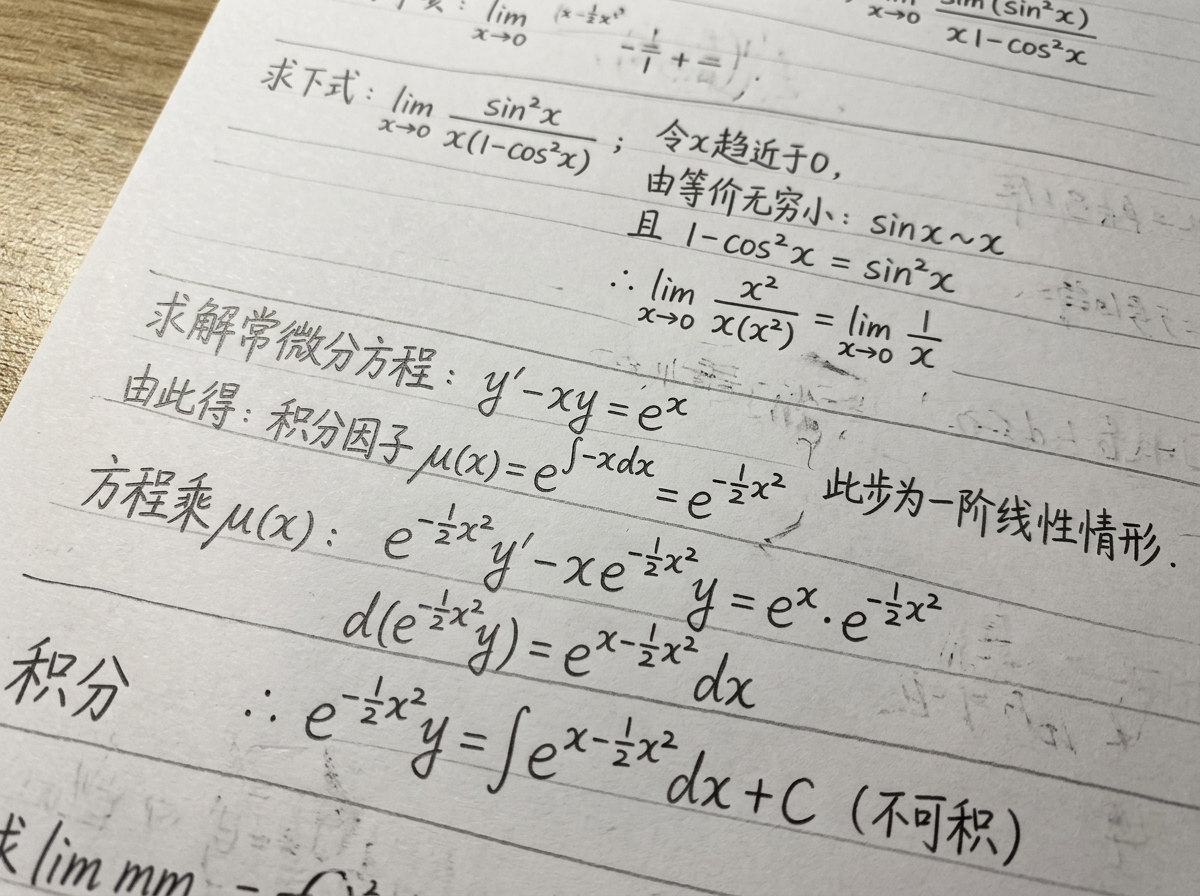 lim x→0 (x-½x²
- 1/1 + =
x→0 (sin²x) / x 1-cos²x
求下式: lim x→0 sin²x / x(1-cos²x) ; 令x趋近于0,
由等价无穷小: sinx~x
且 1-cos²x = sin²x
∴ lim x→0 x² / x(x²) = lim x→0 1/x
求解常微分方程: y′-xy=eˣ
由此得: 积分因子 μ(x)=e^∫-xdx = e^-½x² 此步为一阶线性情形.
方程乘μ(x): e^-½x² y′-xe^-½x² y = eˣ·e^-½x²
d(e^-½x² y) = e^x-½x² dx
积分 ∴ e^-½x² y = ∫e^x-½x² dx + C (不可积)
求 lim mm